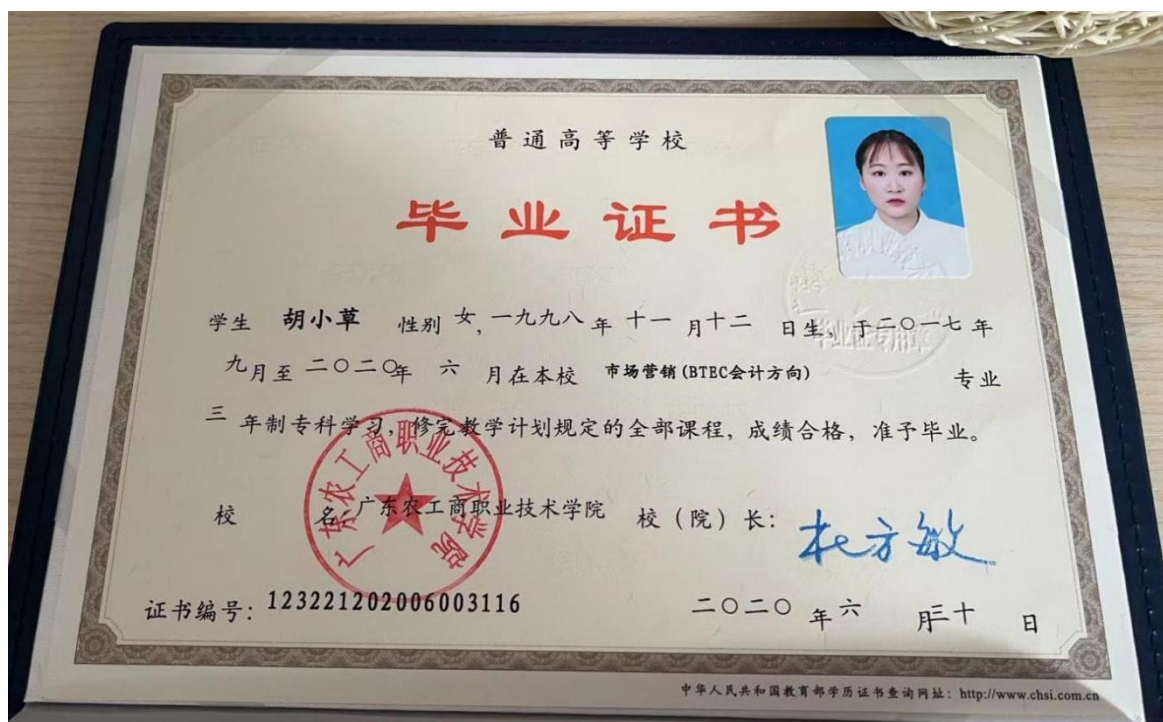 普通高等学校
毕业证书
学生 胡小草 性别 女, 一九九八 年 十一 月十二 日生, 于二〇一七 年
九月至 二〇二〇年 六 月在本校 市场营销(BTEC会计方向) 专业
三 年制专科学习, 修完教学计划规定的全部课程, 成绩合格, 准予毕业。
校 名: 广东农工商职业技术学院 校(院)长: 杜方敏
广东农工商职业技术学院
证书编号: 123221202006003116 二〇二〇 年六 月三十 日
中华人民共和国教育部学历证书查询网址: http://www.chsi.com.cn